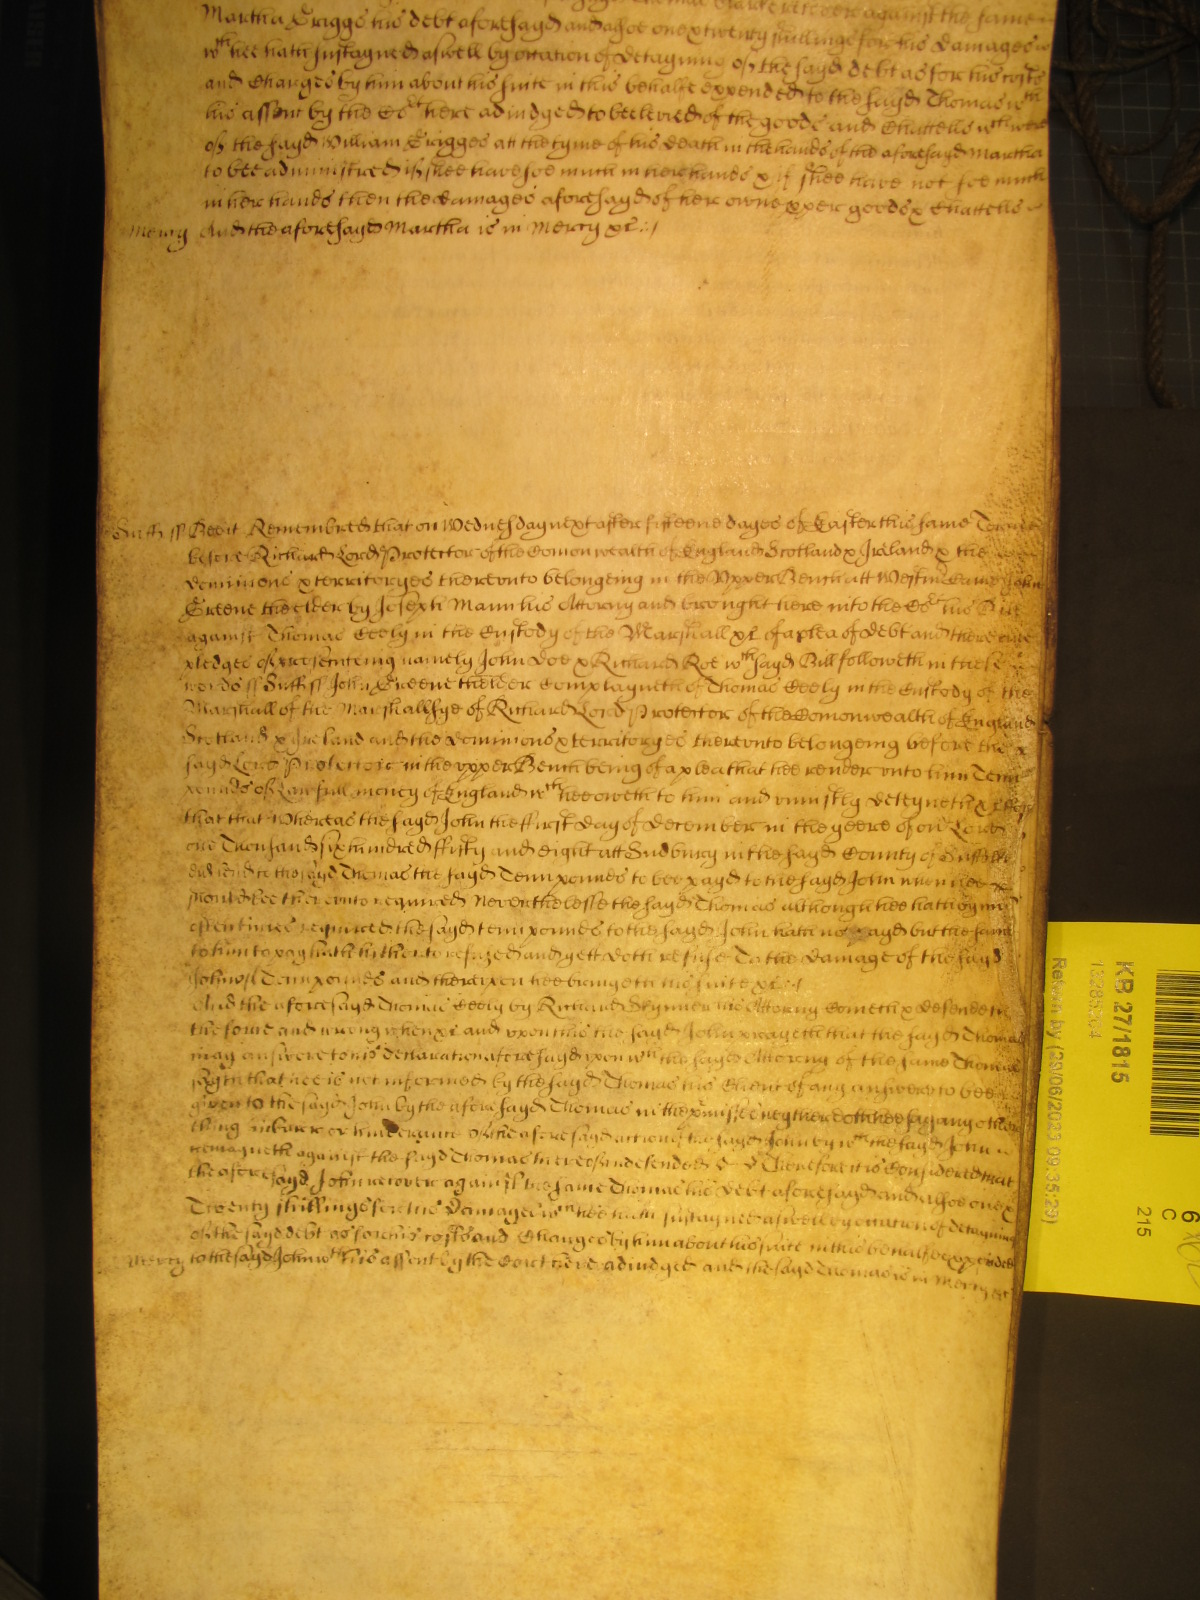 Martha Griggs his debt aforesayd and alsoe one & twenty shillings for his damages
wch hee hath sustayned aswell by occation of detayning of the sayd debt as for his costs
and Charges by him about his suite in this behalfe expended to the sayd Thomas wth
his assent by the Cort here adiudged to bee levied of the goods and Chattells wch were
of the sayd William Griggs att the tyme of his death in the hands of the aforesayd Martha
to bee administred if shee have soe much in her hands & if shee have not soe much
in her hands then the damages aforesayd of her owne pper goods & Chattells
Mercy And the aforesayd Martha is in Mercy &c
Suff ss Bee it Remembred that on Wednesday next after fifteene dayes of Easter this same Terme
before Richard Lord Protector of the Comonwealth of England Scotland & Ireland & the
dominions & territoryes thereunto belongeing in the Vpper Bench att Westm Came John
Greene the elder by Joseph Mann his Attorny and brought here into the Cort his Bill
against Thomas Ceely in the Custody of the Marshall &c of a plea of debt and there are
pledges of prosecuteing namely John Doe & Richard Roe wch sayd Bill followeth in these
words ss Suff ss John Greene the elder Complayneth of Thomas Ceely in the Custody of the
Marshall of the Marshallsye of Richard Lord Protector of the Comonwealth of England
Scotland & Ireland and the dominions & territoryes thereunto belongeing before the
sayd Lord Protector in the vpper Bench being of a plea that hee render vnto him Tenn
pounds of Lawfull money of England wch hee oweth to him and vniustly deteyneth &
that that Whereas the sayd John the ffirst day of December in the yeere of our Lord
one Thousand six hundred ffifty and eight att Sudbury in the sayd County of Suffolke
did lend to the sayd Thomas the sayd Tenn pounds to bee payd to the sayd John when hee
should bee thereunto required Neverthelesse the sayd Thomas although hee hath byn
oftentimes required the sayd tenn pounds to the sayd John hath not payd but the same
to him to pay hath hitherto refused and yett doth refuse To the damage of the sayd
John of Tenn pounds and thereupon hee bringeth his suite &c
And the aforesayd Thomas Ceely by Richard Skynner his Attorny Cometh & defendeth
the force and wrong when &c and vpon this the sayd John prayeth that the sayd Thomas
may answere to his declaration aforesayd vpon wch the sayd Attorny of the same Thomas
sayth that hee is not informed by the sayd Thomas his Client of any answere to bee
given to the sayd John by the aforesayd Thomas in the premisses neyther doth hee say any other
thing in barr or hinderance of the aforesayd action of the sayd John by wch the sayd John
remayneth against the sayd Thomas thereof vndefended Therefore it is Considered that
the aforesayd John recover against the same Thomas his debt aforesayd and alsoe one &
Twenty shillings for the damages wch hee hath sustayned aswell by occation of detayning
of the sayd debt as for his costs and Charges by him about his suite in this behalfe expended
Mercy to the sayd John wth his assent by the Court here adiudged and the sayd Thomas is in Mercy &c
KB 271815
13285204
Return by (29/06/2023 09:35:29)
6
C
215